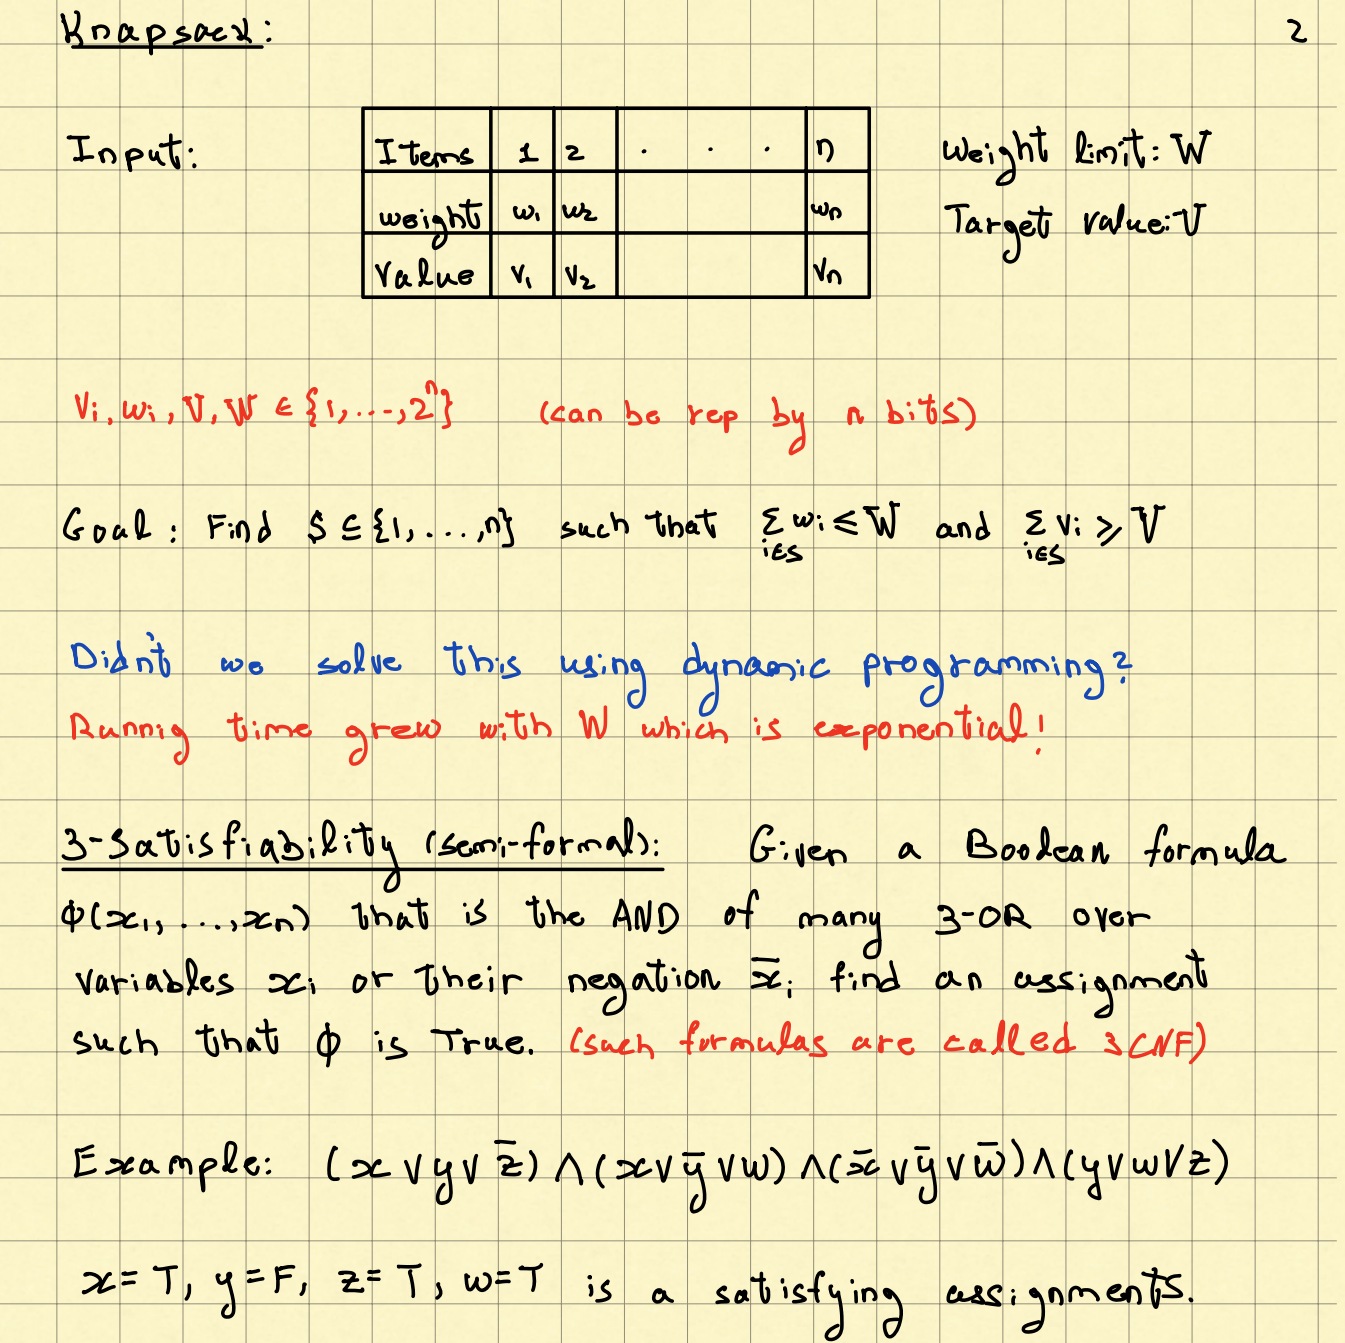 Knapsack: 2
Input: Items 1 2 . . . n Weight limit: W
weight w₁ w₂ wₙ Target value: V
Value v₁ v₂ vₙ
Vi, wi, V, W ∈ {1, ..., 2ⁿ} (can be rep by n bits)
Goal: Find S ⊆ {1, ..., n} such that Σ_{i∈S} wi ≤ W and Σ_{i∈S} Vi ≥ V
Didn't we solve this using dynamic programming?
Runnig time grew with W which is exponential!
3-Satisfiability (semi-formal): Given a Boolean formula
ϕ(x₁, ..., xₙ) that is the AND of many 3-OR over
variables xi or their negation x̄i find an assignment
such that ϕ is True. (such formulas are called 3CNF)
Example: (x ∨ y ∨ z̄) ∧ (x ∨ ȳ ∨ w) ∧ (x̄ ∨ ȳ ∨ w̄) ∧ (y ∨ w ∨ z)
x = T, y = F, z = T, w = T is a satisfying assignments.